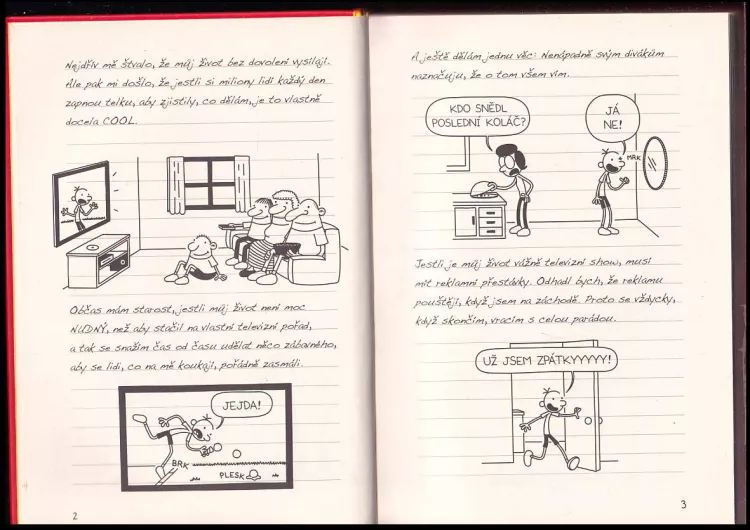 Nejdřív mě štvalo, že můj život bez dovolení vysílají.
Ale pak mi došlo, že jestli si miliony lidí každý den
zapnou telku, aby zjistily, co dělám, je to vlastně
docela COOL.
Občas mám starost, jestli můj život není moc
NUDNÝ, než aby stačil na vlastní televizní pořad,
a tak se snažím čas od času udělat něco zábavného,
aby se lidi, co na mě koukají, pořádně zasmáli.
JEJDA!
BRK
PLESK
2
A ještě dělám jednu věc: Nenápadně svým divákům
naznačuju, že o tom všem vím.
KDO SNĚDL
POSLEDNÍ KOLÁČ?
JÁ
NE!
MRK
Jestli je můj život vážně televizní show, musí
mít reklamní přestávky. Odhadl bych, že reklamu
pouštějí, když jsem na záchodě. Proto se vždycky,
když skončím, vracím s celou parádou.
UŽ JSEM ZPÁTKYYYYY!
3